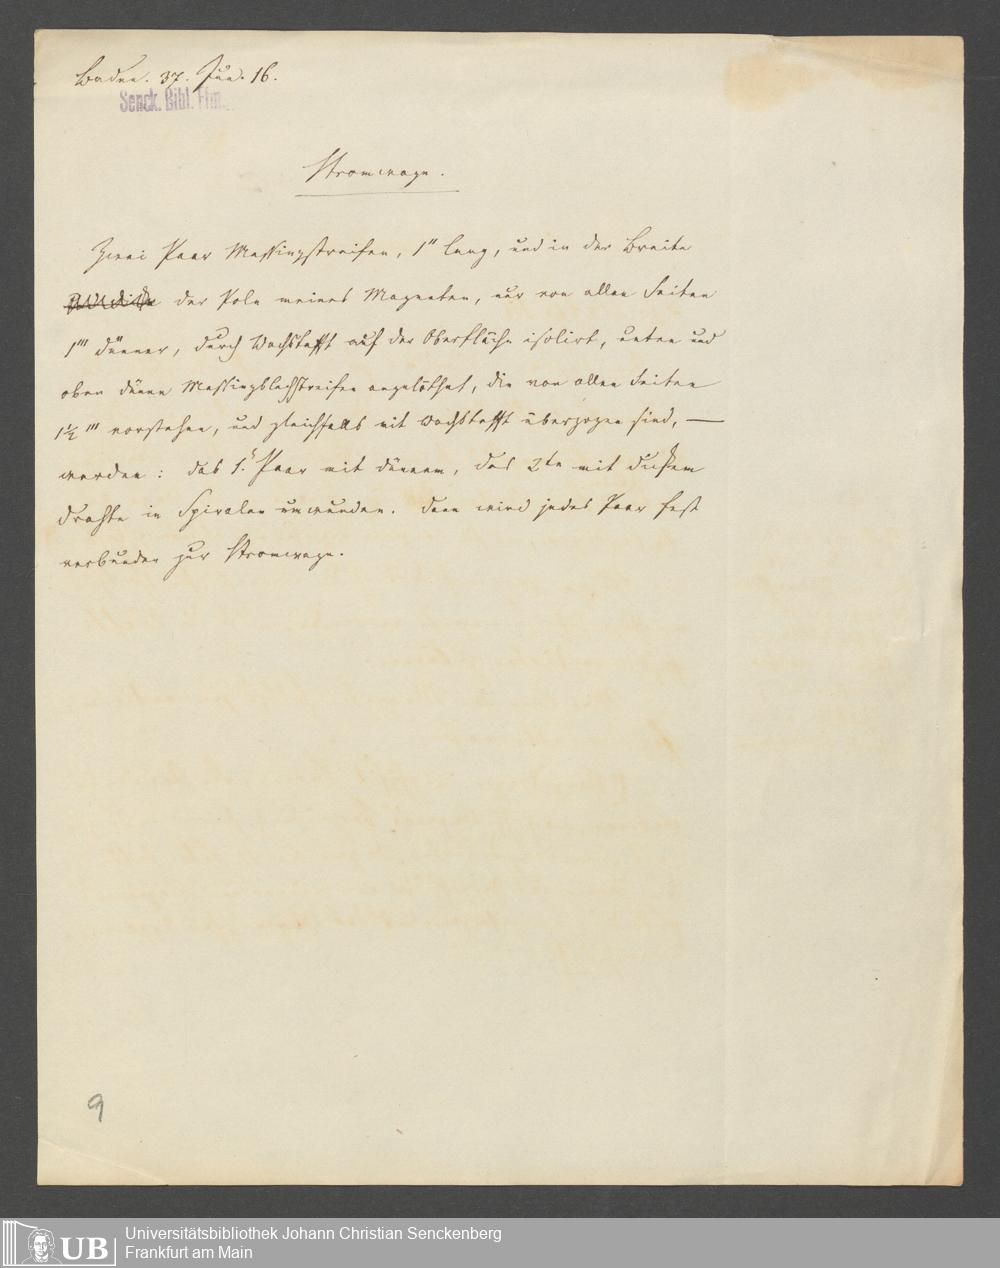 Baden. 37. Jun. 16.
Senck. Bibl. Ffm.
Stromwage.
Zwei Paar Messingstreifen, 1" lang, und in der Breite
der Pole meines Magneten, nur von allen Seiten
1''' dünner, durch Wachstafft auf der Oberfläche isolirt, unten und
oben dünne Messingblechstreifen angelöthet, die von allen Seiten
1½''' vorstehen, und gleichfalls mit Wachstafft überzogen sind, —
werden: das 1. Paar mit dünnem, das 2te mit dickem
Drahte in Spiralen umwunden. Dann wird jedes Paar fest
verbunden zur Stromwage.
9
UB
Universitätsbibliothek Johann Christian Senckenberg
Frankfurt am Main